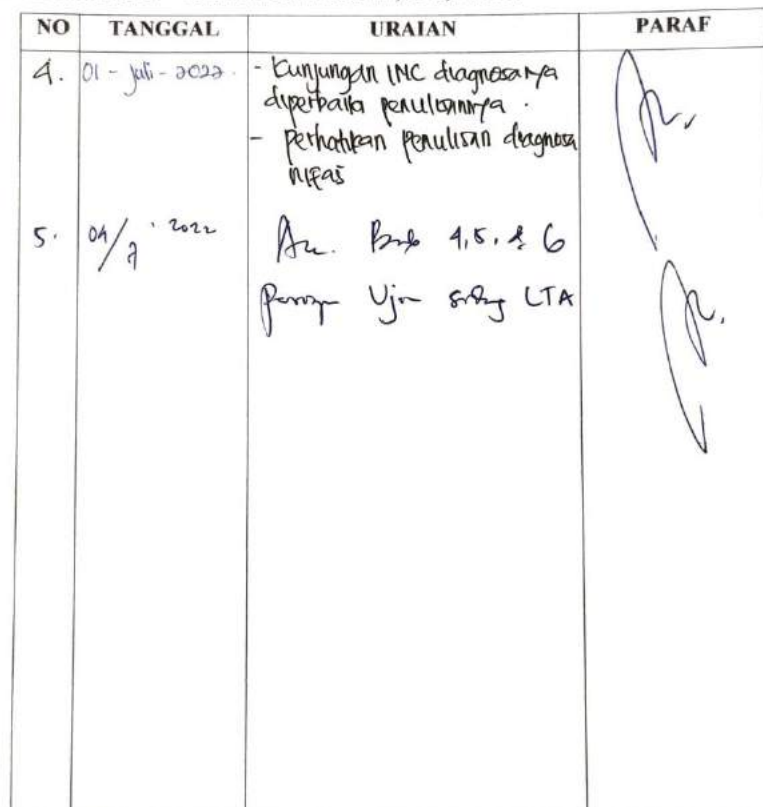 NO TANGGAL URAIAN PARAF
4. 01 - Juli - 2022. - Kunjungan INC diagnosanya
diperbaiki penulisannya.
- perhatikan penulisan diagnosa
nifas
5. 04/7 - 2022 Acc. Bab 4, 5, & 6
Ujian sidang LTA